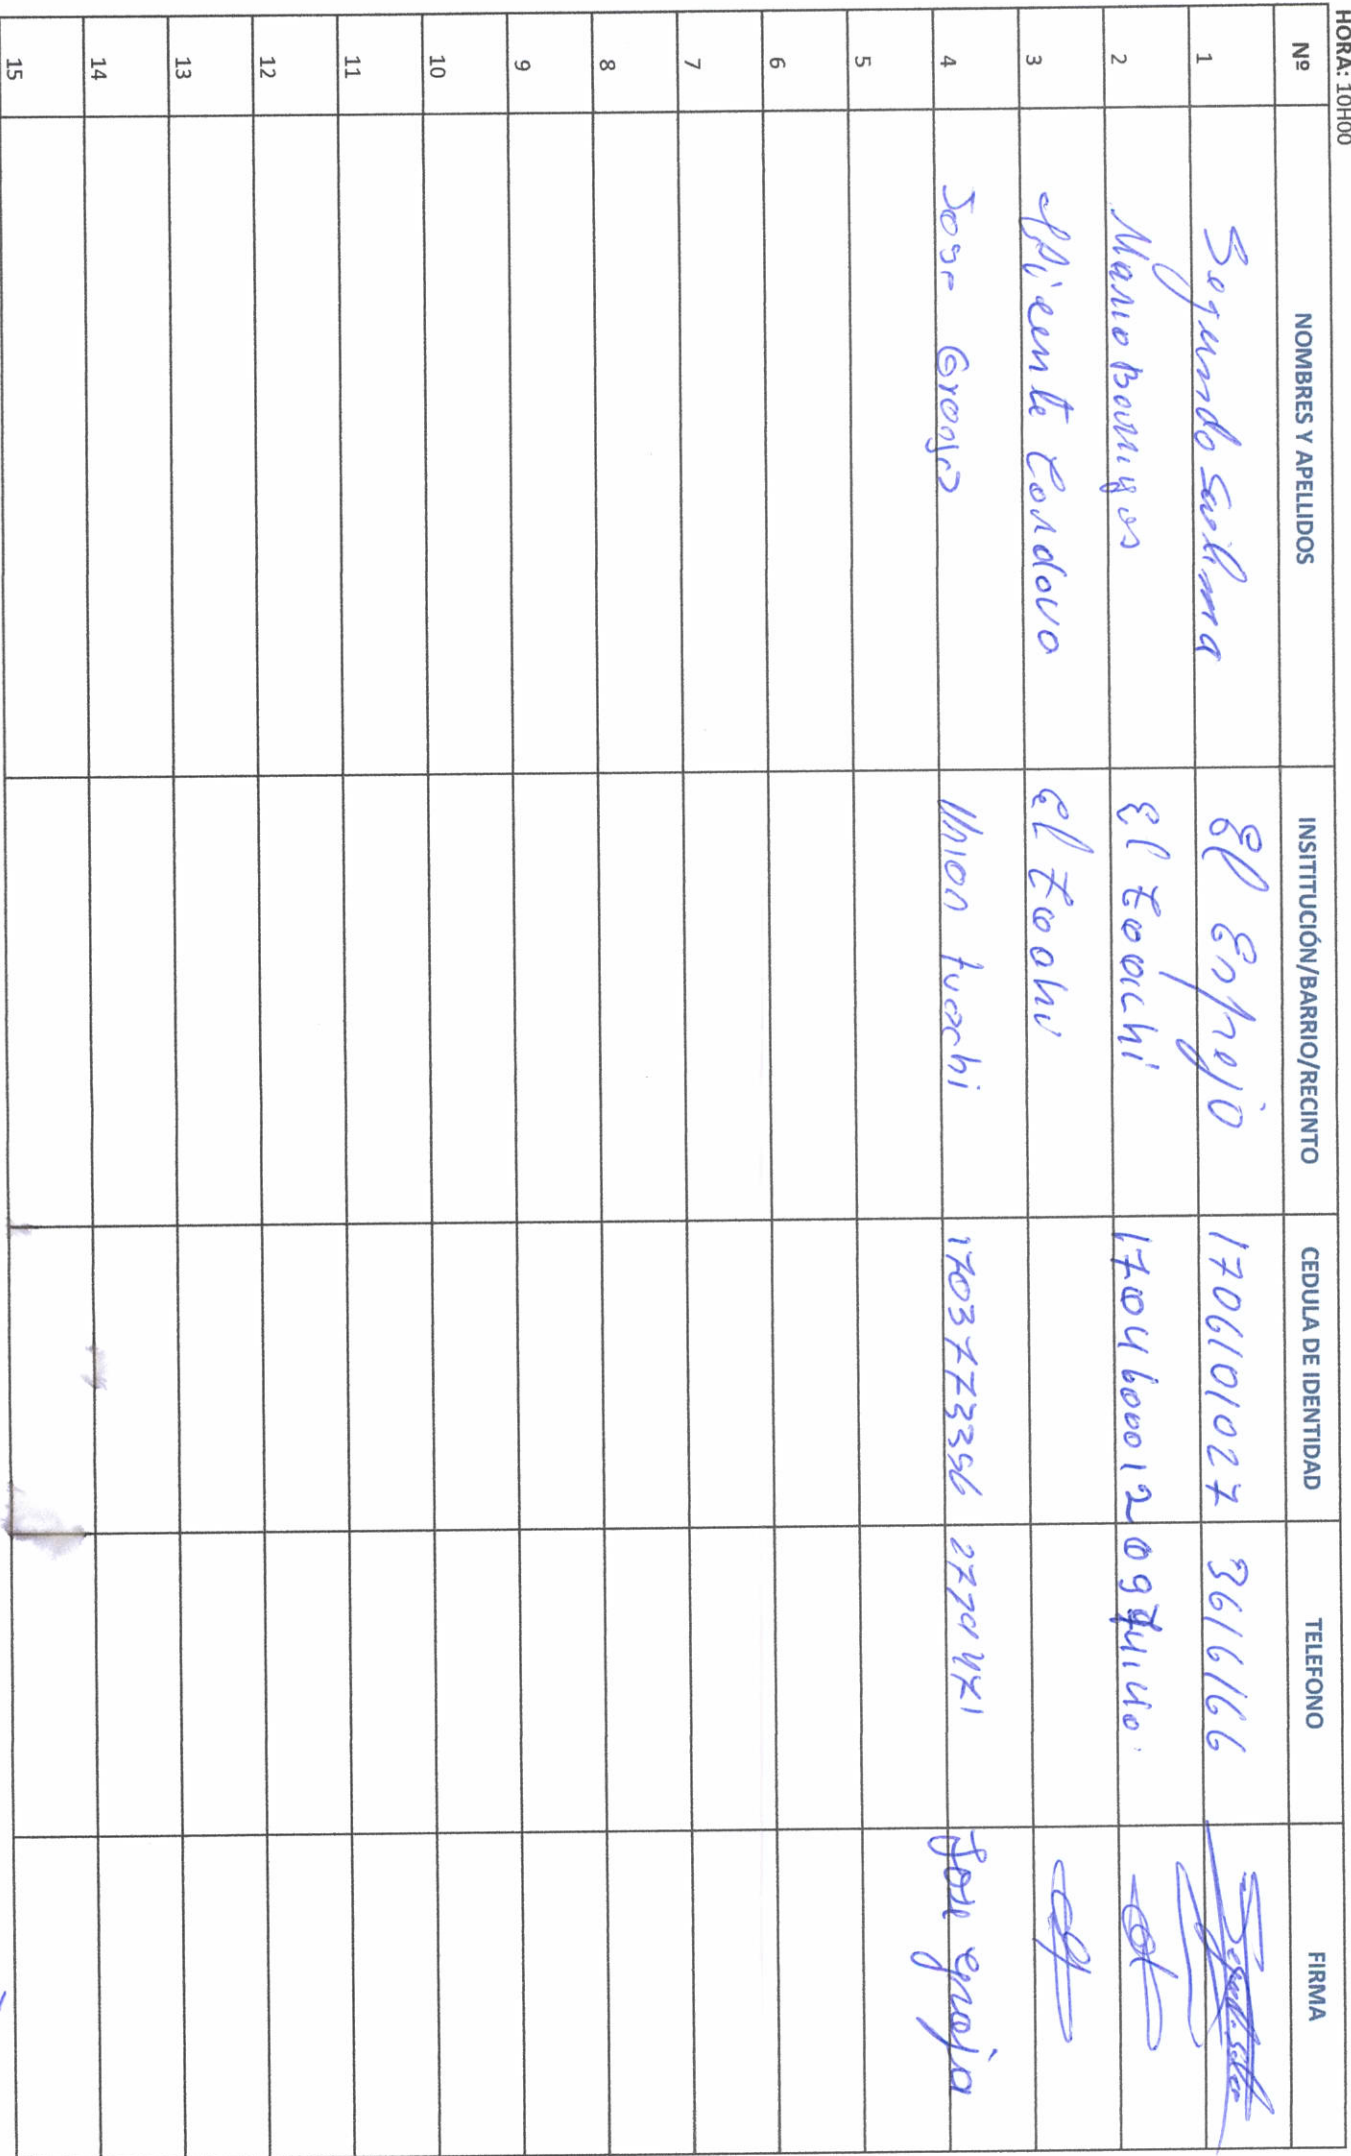 HORA: 10H00
Nº NOMBRES Y APELLIDOS INSITITUCIÓN/BARRIO/RECINTO CEDULA DE IDENTIDAD TELEFONO FIRMA
1 Segundo Sailema El Esfrejo 1706101027 3616166
2 Mario Barrigos El Toachi 1704600012
3 Vicente Cordova El
4 Jose Granja Union tuachi 1703773356 Jose granja
5
6
7
8
9
10
11
12
13
14
15